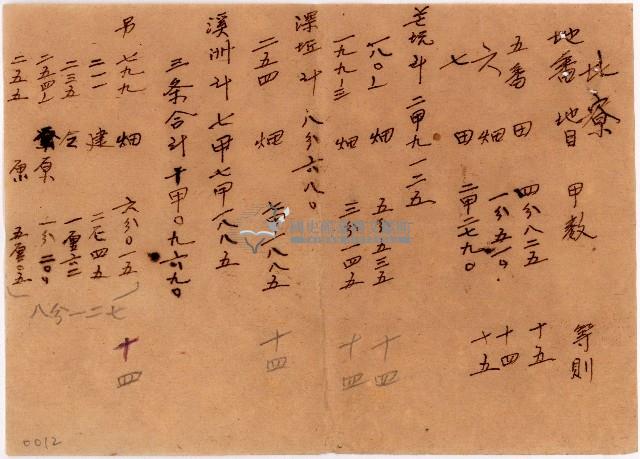 北寮
地番 地目 甲数 等則
五番 田 四分八二五 十五
六 畑 一分五一〇 十四
七 田 二甲二七九〇 十五
坑斗 二甲九一二五
一八〇ノ一 畑 五五三五 十四
一九九ノ三 畑 三分 四五 十四
深坵斗 八分六八〇
二五四 畑 一八八五 十四
溪洲斗 七甲七甲一八八五
三条合斗 十甲〇九六九〇
另 七九九 畑 六分〇一五 十四
二一一 建 二七四五
二三五 仝 一厘六六二
二五四ノ一 原 一分二〇〇
二五五 原 五厘〇五
八分一二七
0012